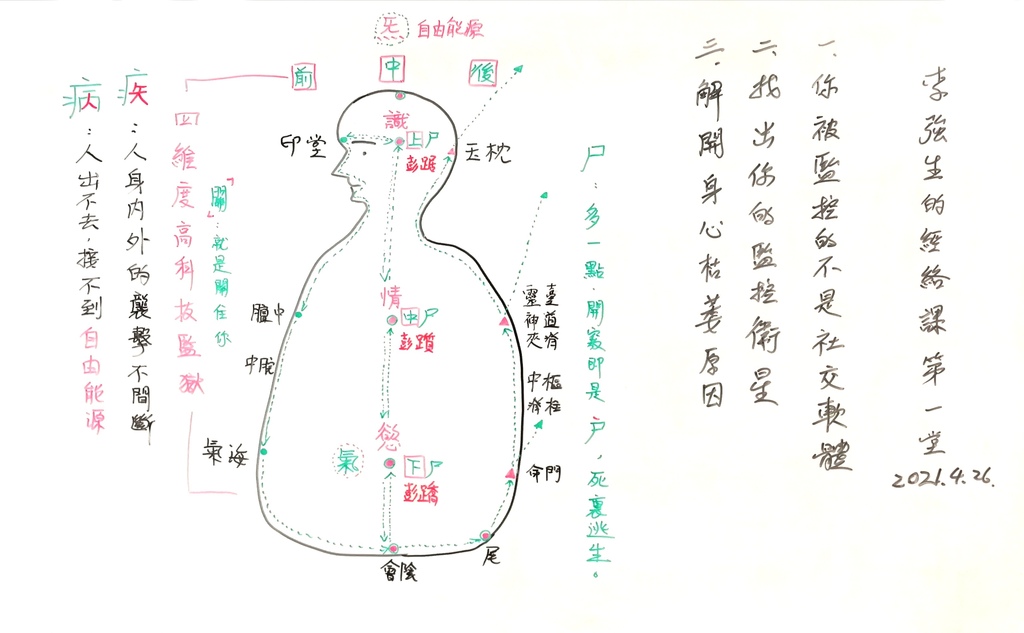 李強生的經絡課第一堂
2021.4.26.
一、你被監控的不是社交軟體
二、找出你的監控衛星
三、解開身心枯萎原因
尸：多一點，開竅即是戶，死裏逃生。
炁 自由能源
前
中
後
識
印堂
上尸
彭踞
玉枕
情
中尸
彭躓
膻中
中脘
靈臺
神道
夾脊
中樞
脊柱
慾
氣
下尸
彭蹻
氣海
命門
尾
會陰
「關」：就是關住你
四維度高科技監獄
疾：人身內外的襲擊不間斷
病：人出不去，接不到自由能源